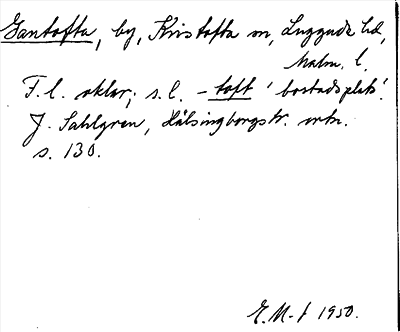 Gantofta, by, Kristofta sn, Luggude hd,
Malm. l.
F. l. oklar; s. l. -toft 'bostadsplats'.
J. Sahlgren, Hälsingborgstr. ortn.
s. 130.
E. M-t 1950.